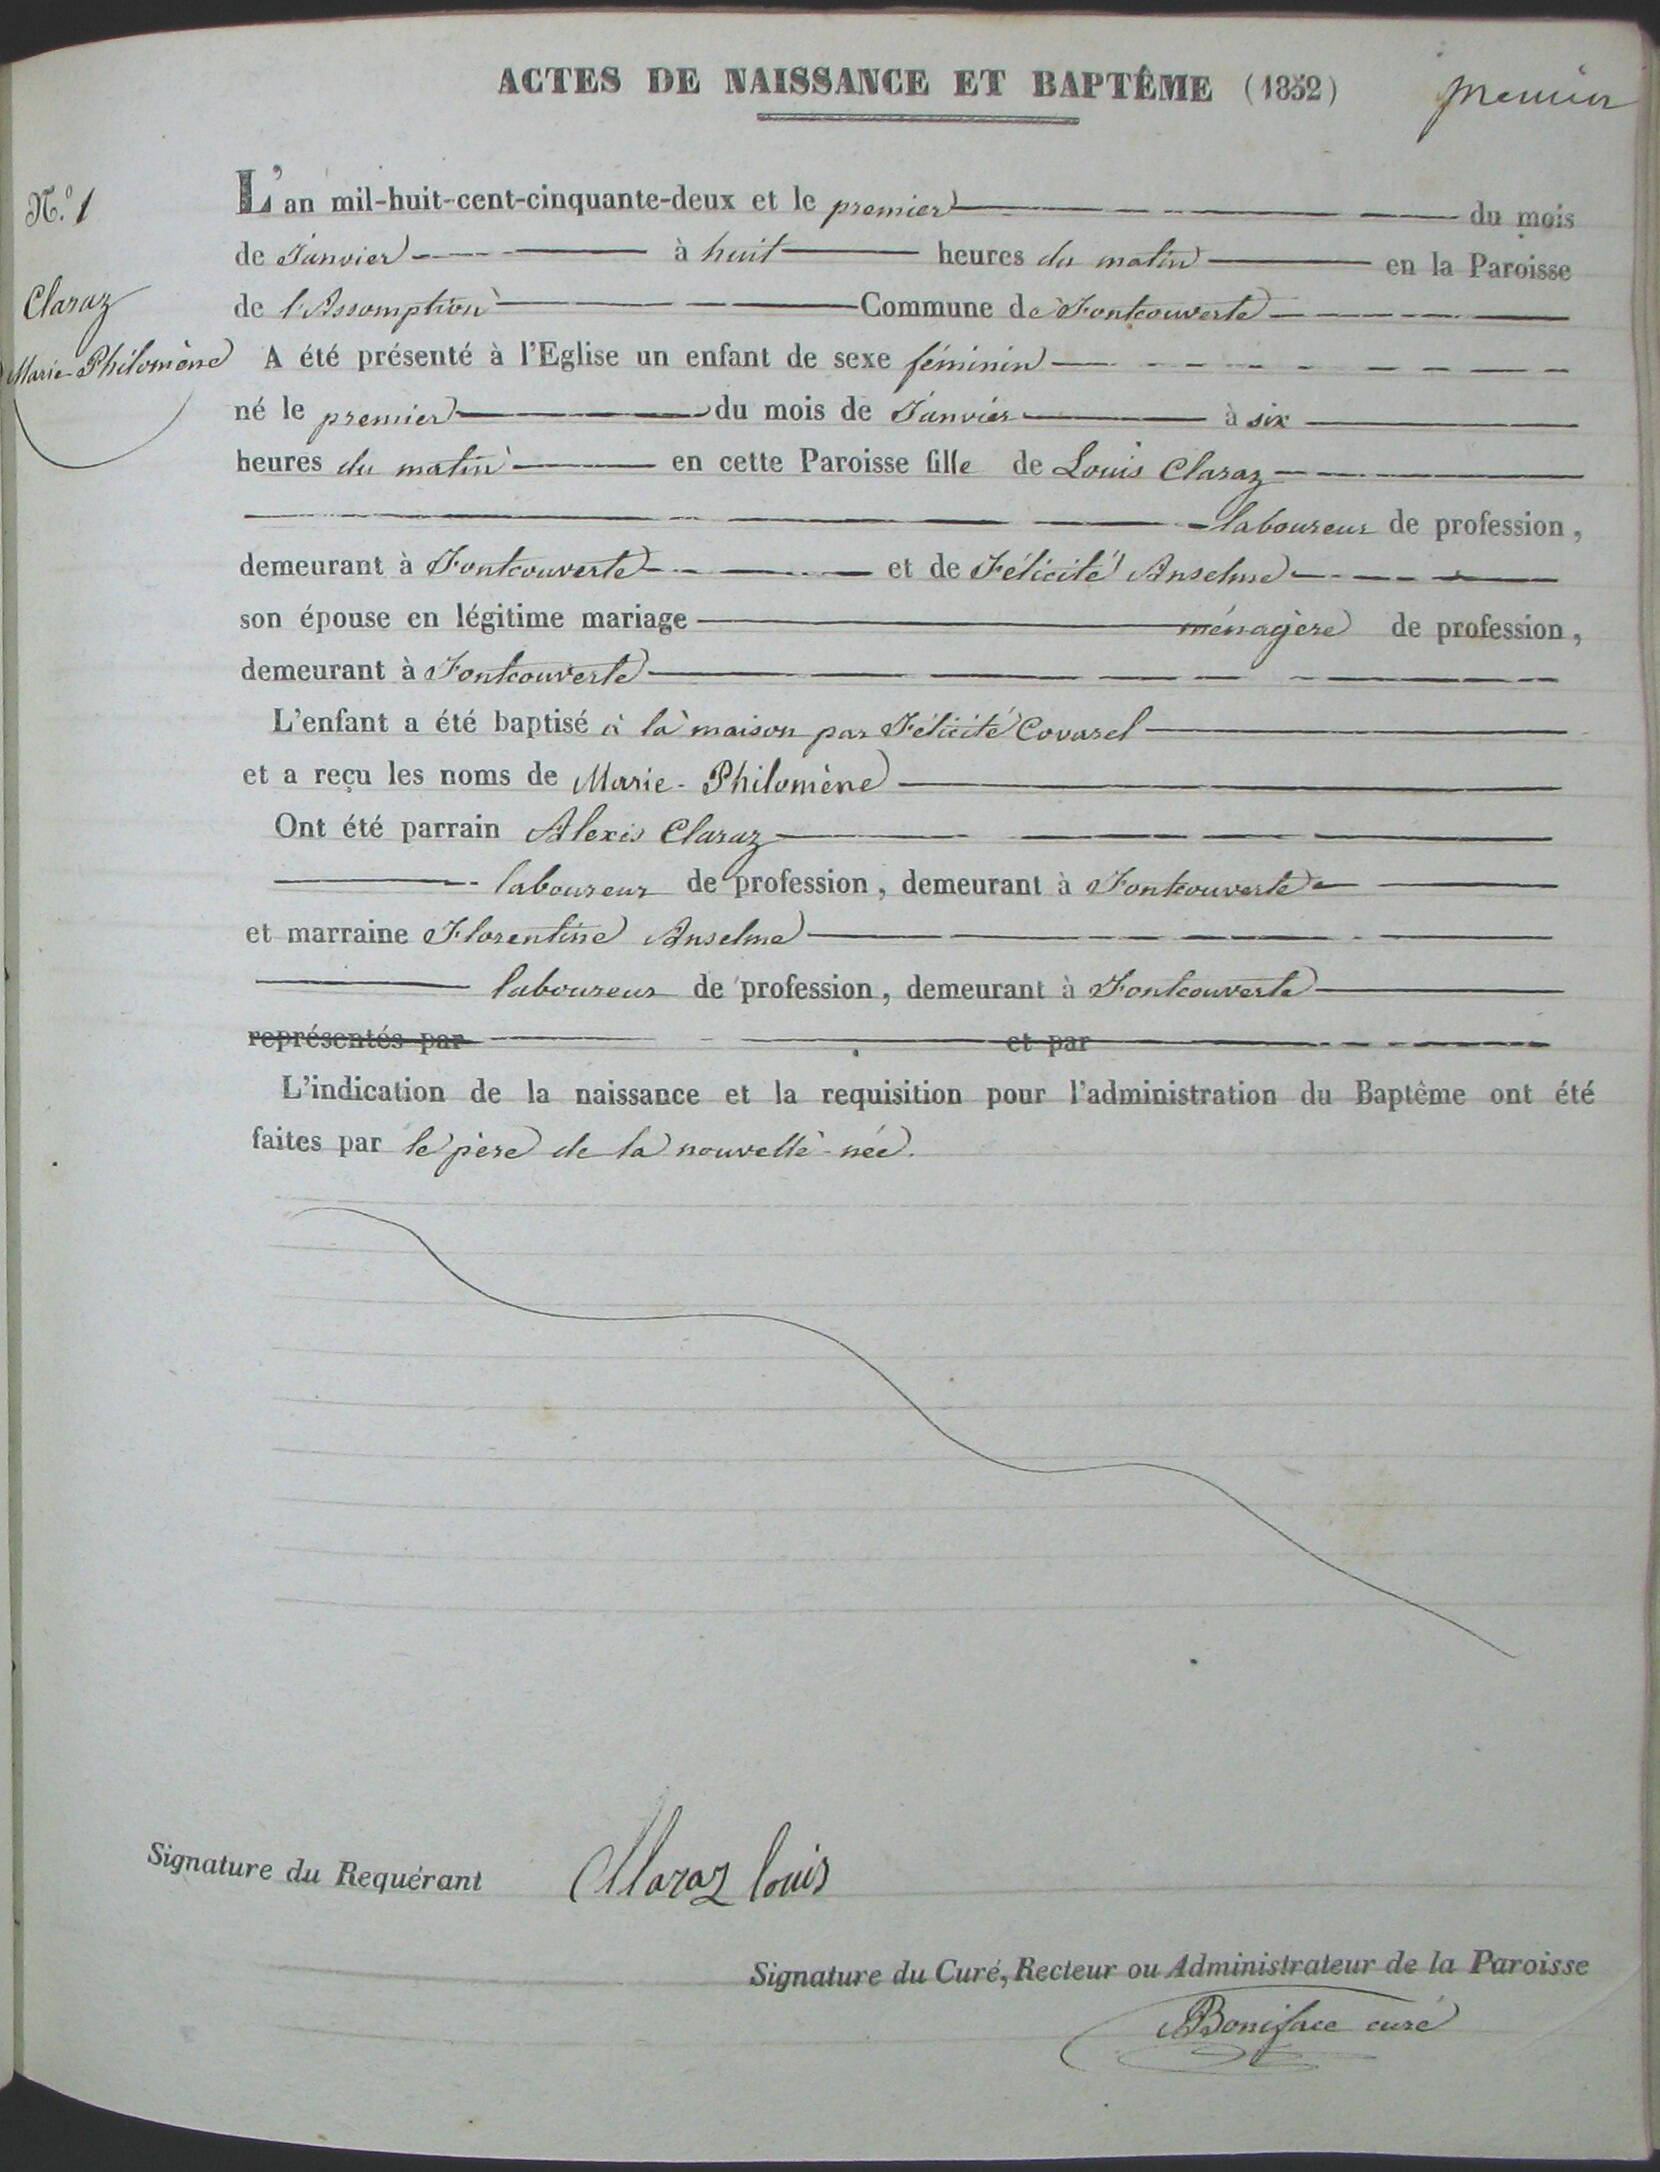 ACTES DE NAISSANCE ET BAPTÊME (1852) premier
N.º 1
Claraz
Marie-Philomène
L'an mil-huit-cent-cinquante-deux et le premier du mois
de Janvier à huit heures du matin en la Paroisse
de l'Assomption Commune de Fontcouverte
A été présenté à l'Eglise un enfant de sexe féminin
né le premier du mois de Janvier à six
heures du matin en cette Paroisse fille de Louis Claraz
laboureur de profession,
demeurant à Fontcouverte et de Félicité Anselme
son épouse en légitime mariage ménagère de profession,
demeurant à Fontcouverte
L'enfant a été baptisé à la maison par Félicité Covarel
et a reçu les noms de Marie-Philomène
Ont été parrain Alexis Claraz
laboureur de profession, demeurant à Fontcouverte
et marraine Florentine Anselme
laboureur de profession, demeurant à Fontcouverte
représentés par et par
L'indication de la naissance et la requisition pour l'administration du Baptême ont été
faites par le père de la nouvelle-née.
Signature du Requérant Claraz louis
Signature du Curé, Recteur ou Administrateur de la Paroisse
Boniface curé